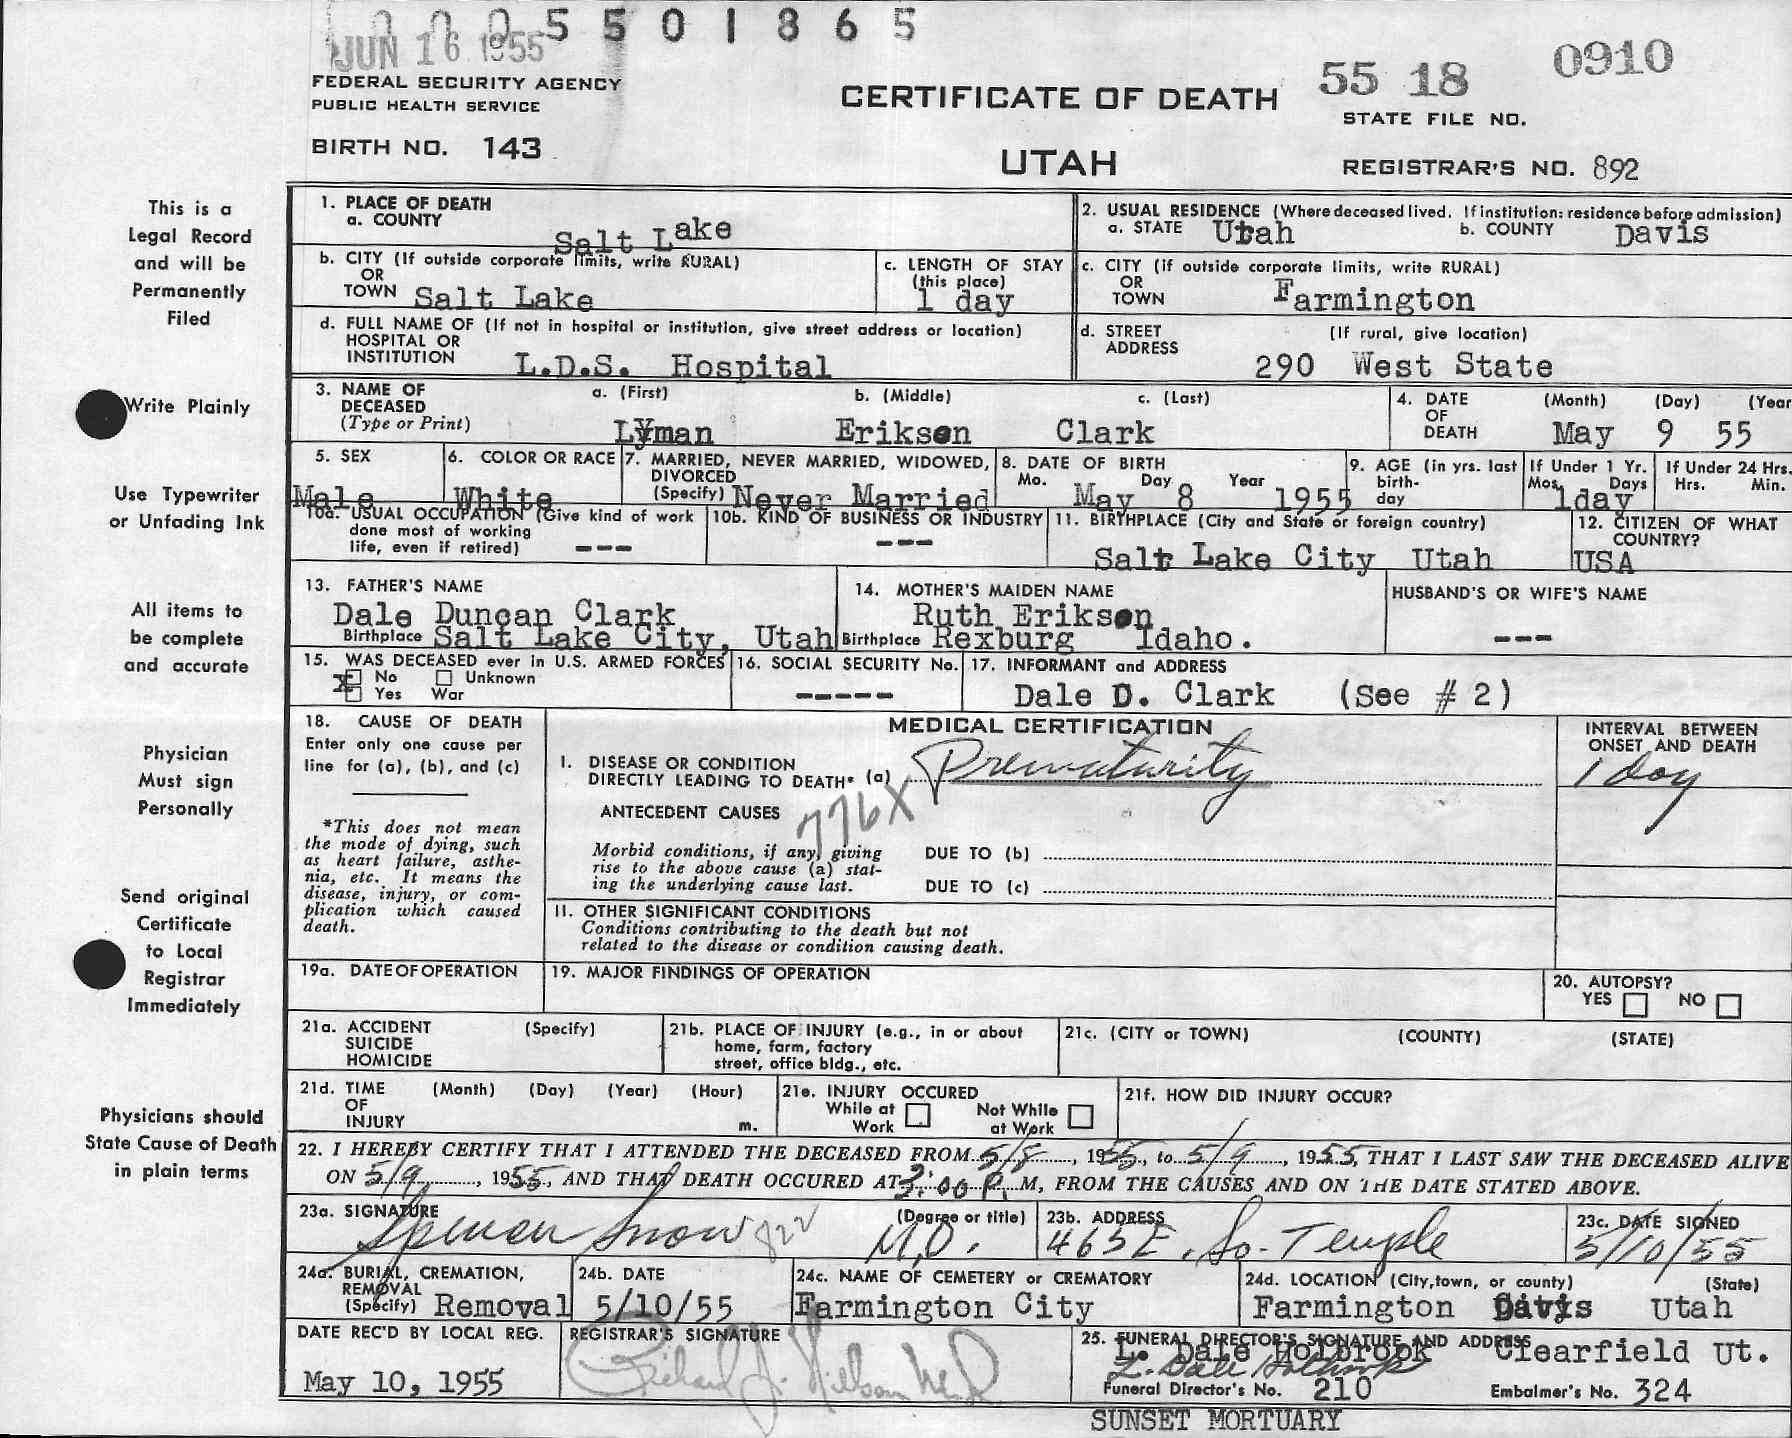 0 0 0 5 5 0 1 8 6 5
JUN 16 1955
FEDERAL SECURITY AGENCY
PUBLIC HEALTH SERVICE
BIRTH NO. 143
CERTIFICATE OF DEATH
UTAH
55 18 0910
STATE FILE NO.
REGISTRAR'S NO. 892
This is a
Legal Record
and will be
Permanently
Filed
Write Plainly
Use Typewriter
or Unfading Ink
All items to
be complete
and accurate
Physician
Must sign
Personally
Send original
Certificate
to Local
Registrar
Immediately
Physicians should
State Cause of Death
in plain terms
1. PLACE OF DEATH
a. COUNTY
Salt Lake
2. USUAL RESIDENCE (Where deceased lived. If institution: residence before admission)
a. STATE Utah b. COUNTY Davis
b. CITY (If outside corporate limits, write RURAL)
OR
TOWN Salt Lake
c. LENGTH OF STAY
(this place)
1 day
c. CITY (if outside corporate limits, write RURAL)
OR
TOWN Farmington
d. FULL NAME OF (If not in hospital or institution, give street address or location)
HOSPITAL OR
INSTITUTION L.D.S. Hospital
d. STREET (If rural, give location)
ADDRESS
290 West State
3. NAME OF a. (First) b. (Middle) c. (Last)
DECEASED
(Type or Print) Lyman Erikson Clark
4. DATE (Month) (Day) (Year
OF
DEATH May 9 55
5. SEX
Male
6. COLOR OR RACE
White
7. MARRIED, NEVER MARRIED, WIDOWED,
DIVORCED
(Specify) Never Married
8. DATE OF BIRTH
Mo. Day Year
May 8 1955
9. AGE (in yrs. last
birth-
day
If Under 1 Yr.
Mos. Days
1day
If Under 24 Hrs.
Hrs. Min.
10a. USUAL OCCUPATION (Give kind of work
done most of working
life, even if retired) ---
10b. KIND OF BUSINESS OR INDUSTRY
---
11. BIRTHPLACE (City and State or foreign country)
Salt Lake City Utah
12. CITIZEN OF WHAT
COUNTRY?
USA
13. FATHER'S NAME
Dale Duncan Clark
Birthplace Salt Lake City, Utah
14. MOTHER'S MAIDEN NAME
Ruth Erikson
Birthplace Rexburg Idaho.
HUSBAND'S OR WIFE'S NAME
---
15. WAS DECEASED ever in U.S. ARMED FORCES
X No Unknown
Yes War
16. SOCIAL SECURITY No.
-----
17. INFORMANT and ADDRESS
Dale D. Clark (See # 2)
18. CAUSE OF DEATH
Enter only one cause per
line for (a), (b), and (c)
*This does not mean
the mode of dying, such
as heart failure, asthe-
nia, etc. It means the
disease, injury, or com-
plication which caused
death.
MEDICAL CERTIFICATION
I. DISEASE OR CONDITION
DIRECTLY LEADING TO DEATH* (a) Prematurity
INTERVAL BETWEEN
ONSET AND DEATH
1 day
ANTECEDENT CAUSES
776X
Morbid conditions, if any, giving
rise to the above cause (a) stat-
ing the underlying cause last.
DUE TO (b)
DUE TO (c)
II. OTHER SIGNIFICANT CONDITIONS
Conditions contributing to the death but not
related to the disease or condition causing death.
19a. DATE OF OPERATION
19. MAJOR FINDINGS OF OPERATION
20. AUTOPSY?
YES NO
21a. ACCIDENT (Specify)
SUICIDE
HOMICIDE
21b. PLACE OF INJURY (e.g., in or about
home, farm, factory
street, office bldg., etc.
21c. (CITY or TOWN) (COUNTY) (STATE)
21d. TIME (Month) (Day) (Year) (Hour)
OF
INJURY m.
21e. INJURY OCCURED
While at Not While
Work at Work
21f. HOW DID INJURY OCCUR?
22. I HEREBY CERTIFY THAT I ATTENDED THE DECEASED FROM 5/8, 1955, to 5/9, 1955, THAT I LAST SAW THE DECEASED ALIVE
ON 5/9, 1955, AND THAT DEATH OCCURED AT 3:00 P. M, FROM THE CAUSES AND ON THE DATE STATED ABOVE.
23a. SIGNATURE (Degree or title)
Spencer Snow M.D.
23b. ADDRESS
465 E. So. Temple
23c. DATE SIGNED
5/10/55
24a. BURIAL, CREMATION,
REMOVAL
(Specify) Removal
24b. DATE
5/10/55
24c. NAME OF CEMETERY or CREMATORY
Farmington City
24d. LOCATION (City, town, or county) (State)
Farmington Davis Utah
DATE REC'D BY LOCAL REG.
May 10, 1955
REGISTRAR'S SIGNATURE
25. FUNERAL DIRECTOR'S SIGNATURE AND ADDRESS
L. Dale Holbrook Clearfield Ut.
L. Dale Holbrook
Funeral Director's No. 210 Embalmer's No. 324
SUNSET MORTUARY